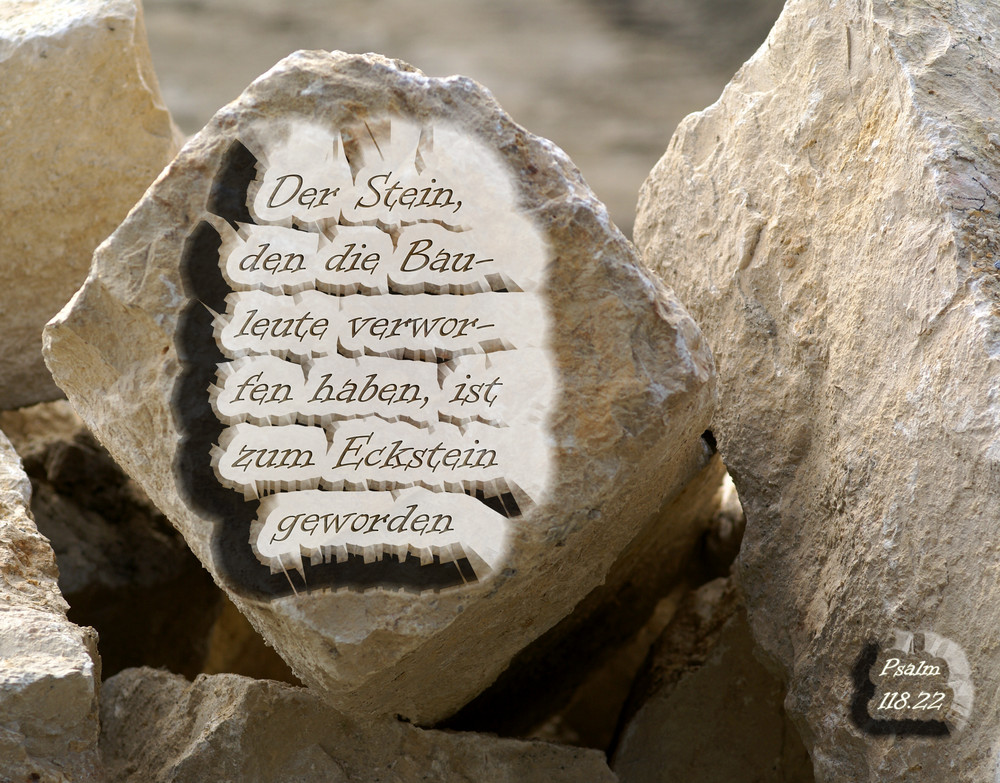 Der Stein,
den die Bau-
leute verwor-
fen haben, ist
zum Eckstein
geworden
Psalm
118.22